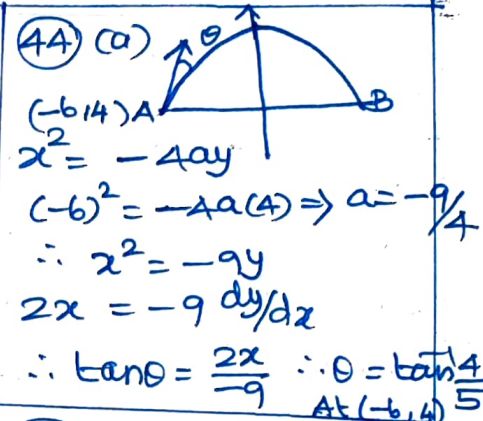 44 (a) θ
(-6,4) A B
x² = -4ay
(-6)² = -4a(4) ⇒ a = -9/4
∴ x² = -9y
2x = -9 dy/dx
∴ tanθ = 2x/-9 ∴ θ = tan⁻¹ 4/5
At (-6,4)